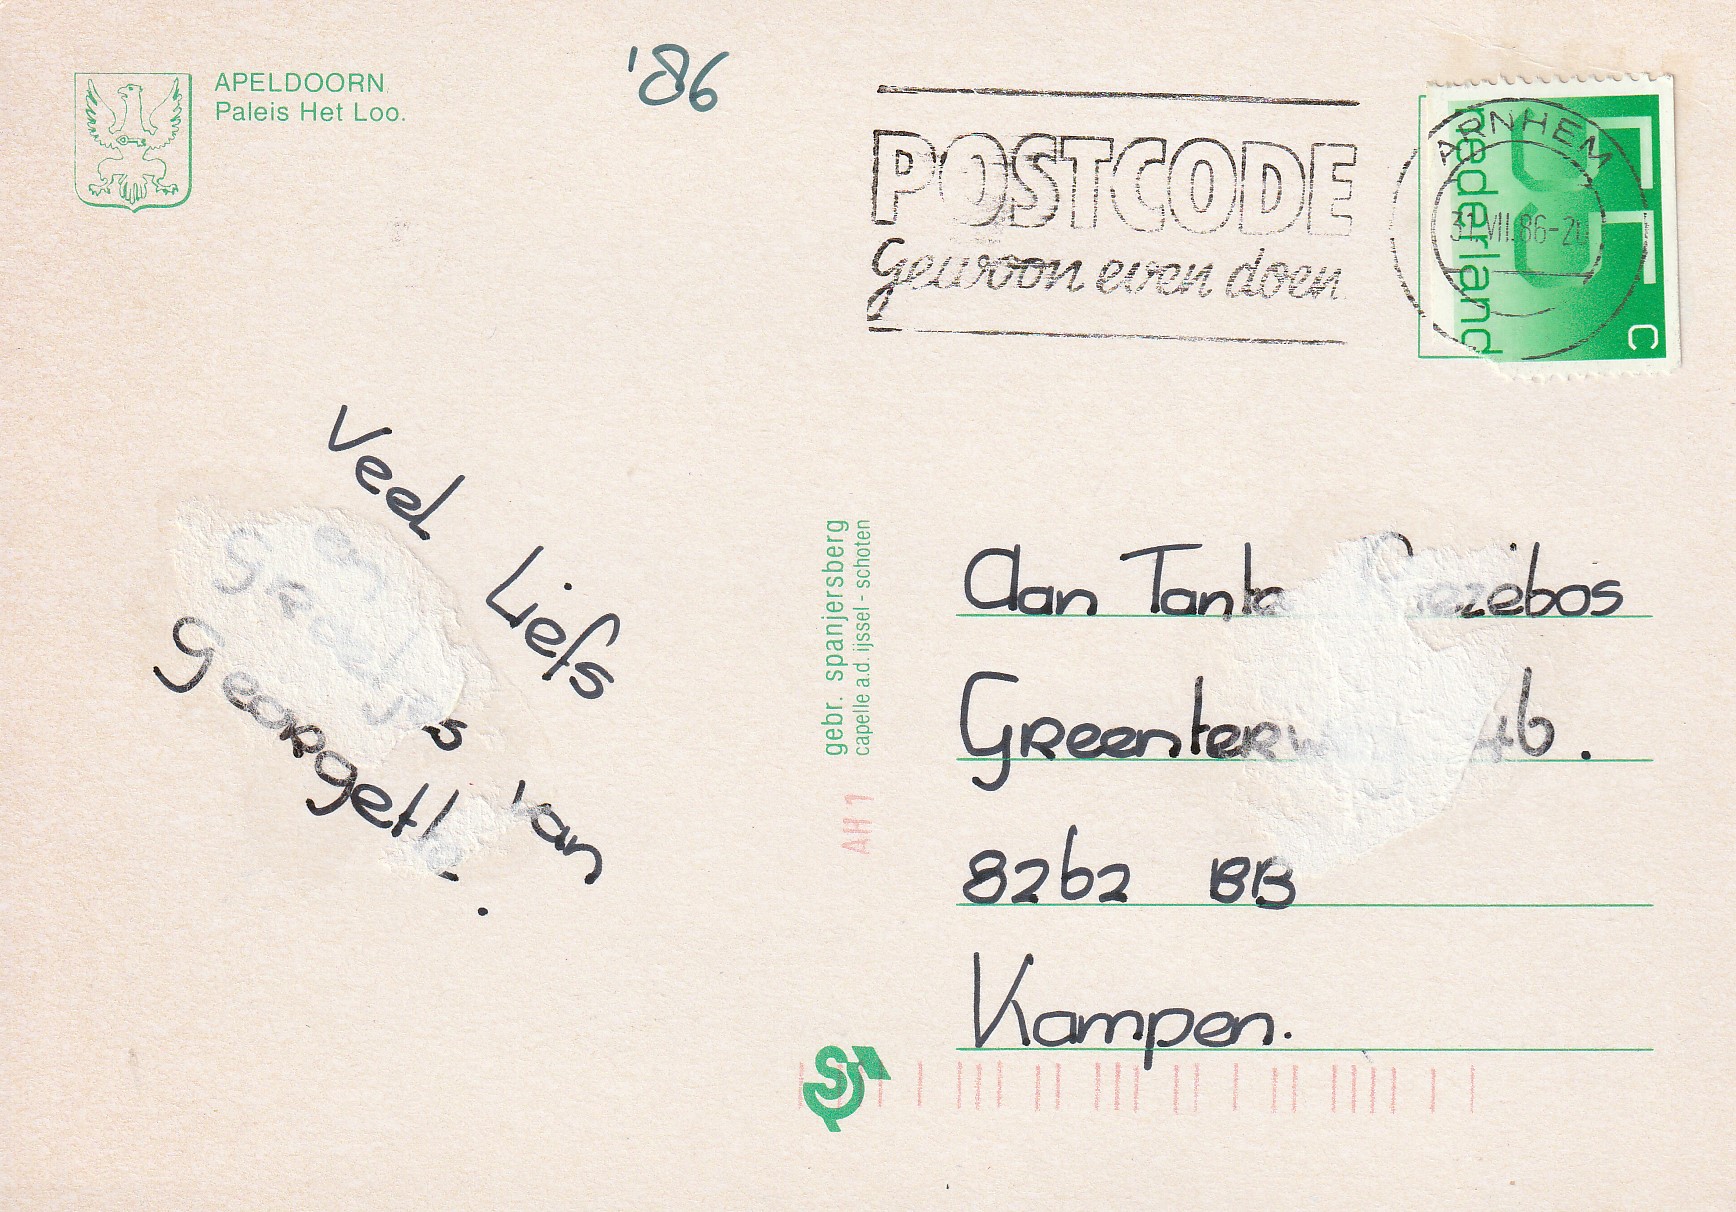 APELDOORN.
Paleis Het Loo.
'86
POSTCODE
Gewoon even doen.
ARNHEM
31 VII.86-
nederland
55 c
Veel Liefs
en
van
Georgette.
gebr. spanjersberg
capelle a.d. ijssel - schoten
AH 1
Aan Tante
8262 BB
Kampen.